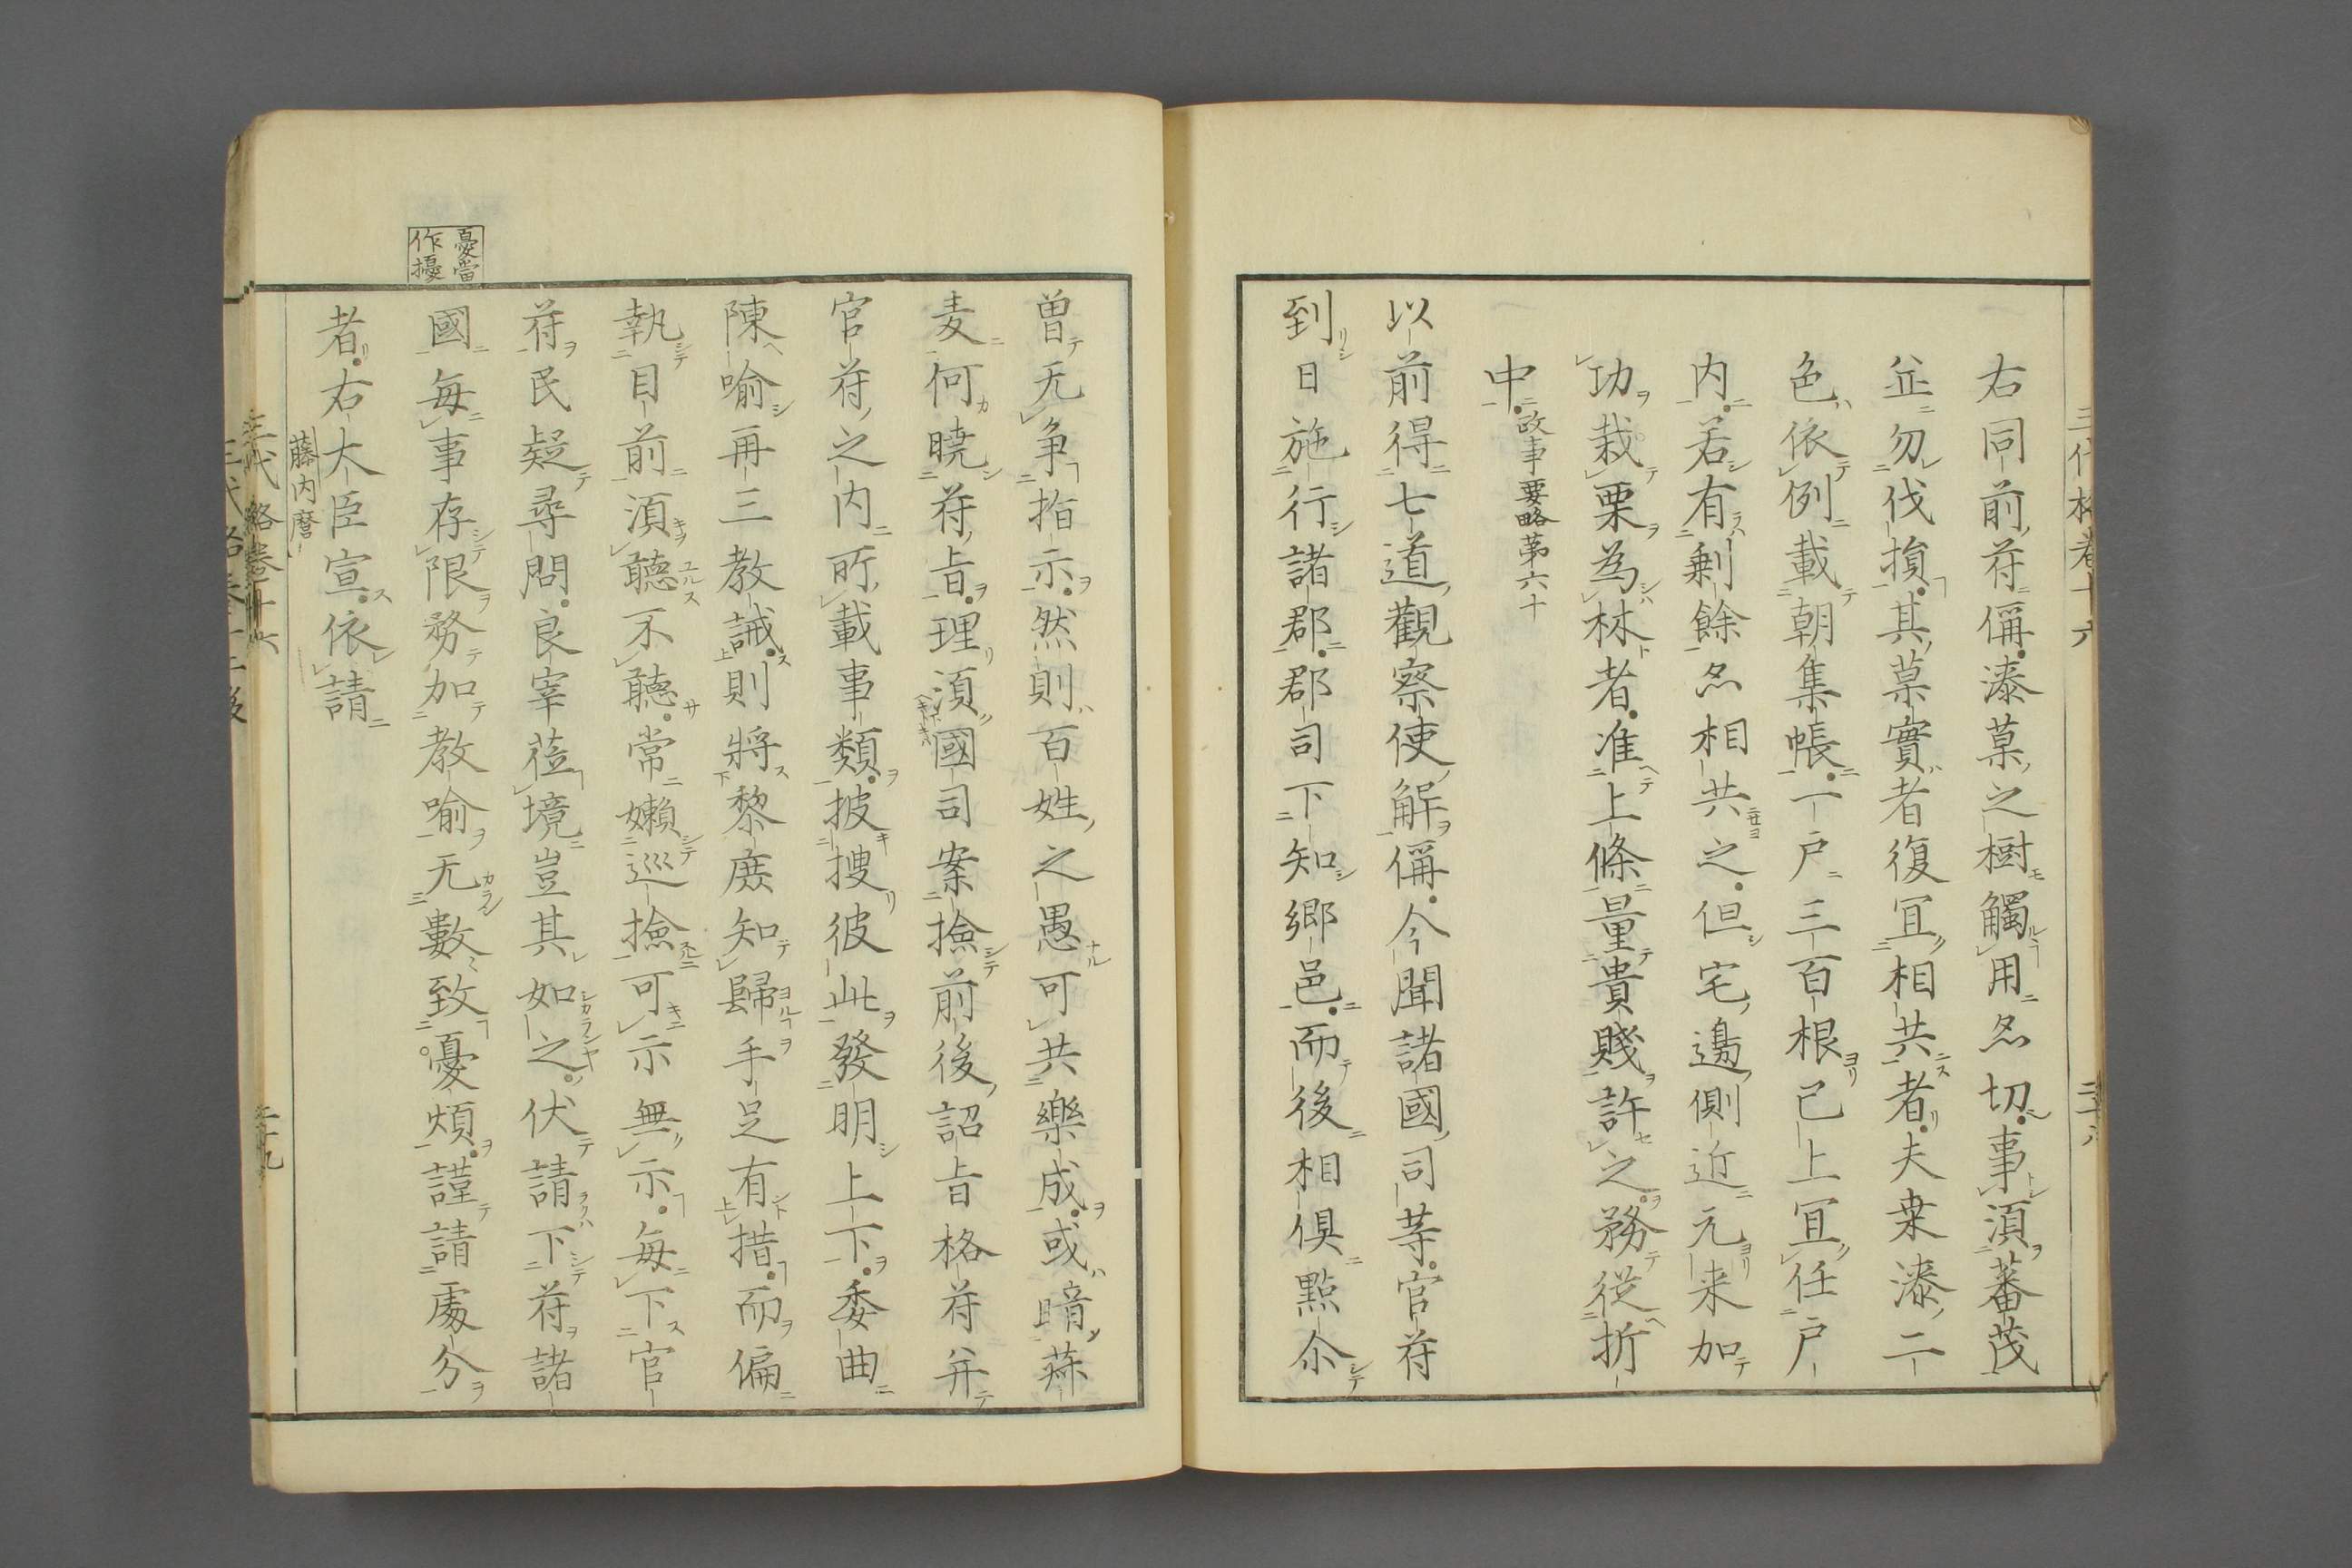 右同前符偁漆菓之樹觸用尓切事湏蕃茂
並勿伐損其菓實者復冝相共者夫桒漆二
色依例載朝集帳一戸三百根已上冝任戸
内若有剩餘尓相共之但宅邉側近元来加
功栽栗為林者准上條量貴賤許之務從折
中 政事要略第六十
以前得七道觀察使解偁今聞諸國司等官符
到日施行諸郡郡司下知郷邑而後相倶㸃尒
曽无争指示然則百姓之愚可共樂成或暗菽
麦何曉符旨理湏國司案撿前後詔旨格符并
官符之内所載事類披搜彼此發明上下委曲
陳喻再三教誡則將黎庶知歸手足有措而偏
執目前湏聽不聽常嬾巡撿可示無示毎下官
符民疑尋問良宰莅境豈其如之伏請下符諸
國毎事存限務加教喻无數致憂煩謹請處分
者右大臣宣依請
憂當作擾
藤内麿
三代格巻十六
三十九